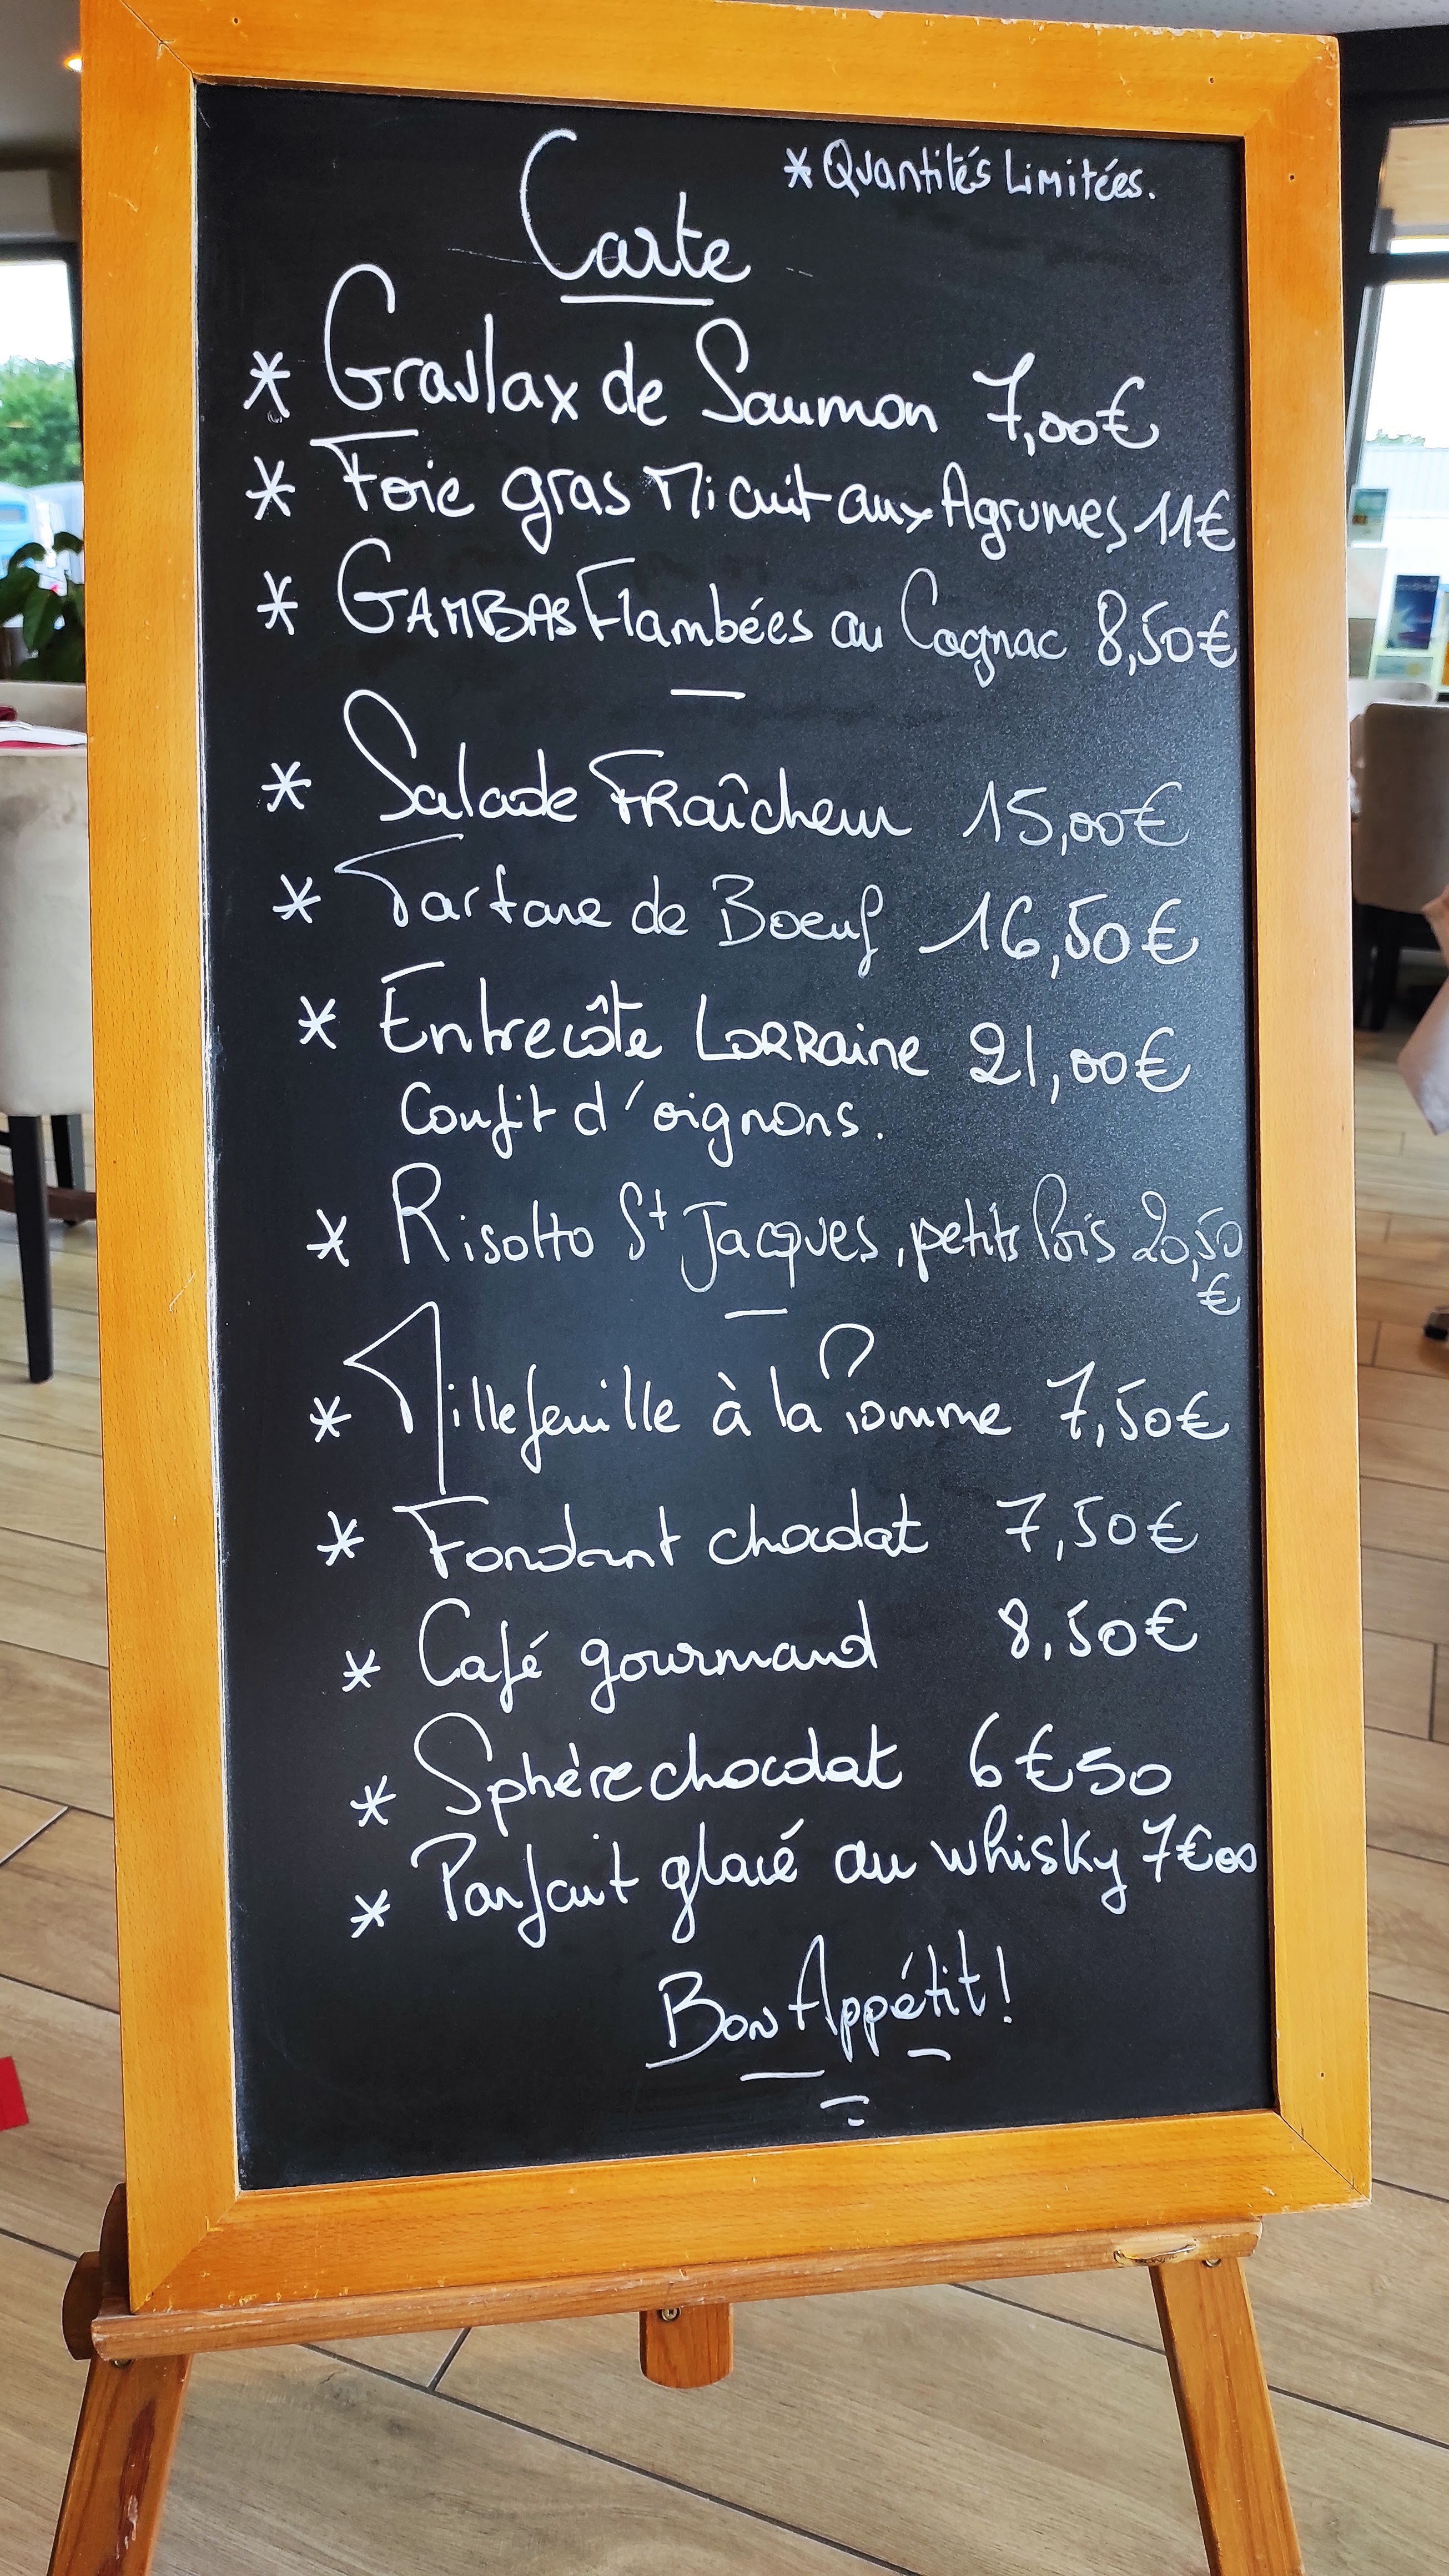 * Quantités Limitées.
Carte
* Gravlax de Saumon 7,00€
* Foie gras Mi cuit aux Agrumes 11€
* GAMBAS Flambées au Cognac 8,50€
* Salade Fraîcheur 15,00€
* Tartare de Boeuf 16,50€
* Entrecôte Lorraine 21,00€
Confit d'oignons.
* Risotto St Jacques, petits Pois 20,50
€
* Millefeuille à la Pomme 7,50€
* Fondant chocolat 7,50€
* Café gourmand 8,50€
* Sphère chocolat 6€50
* Parfait glacé au whisky 7€00
Bon Appétit!